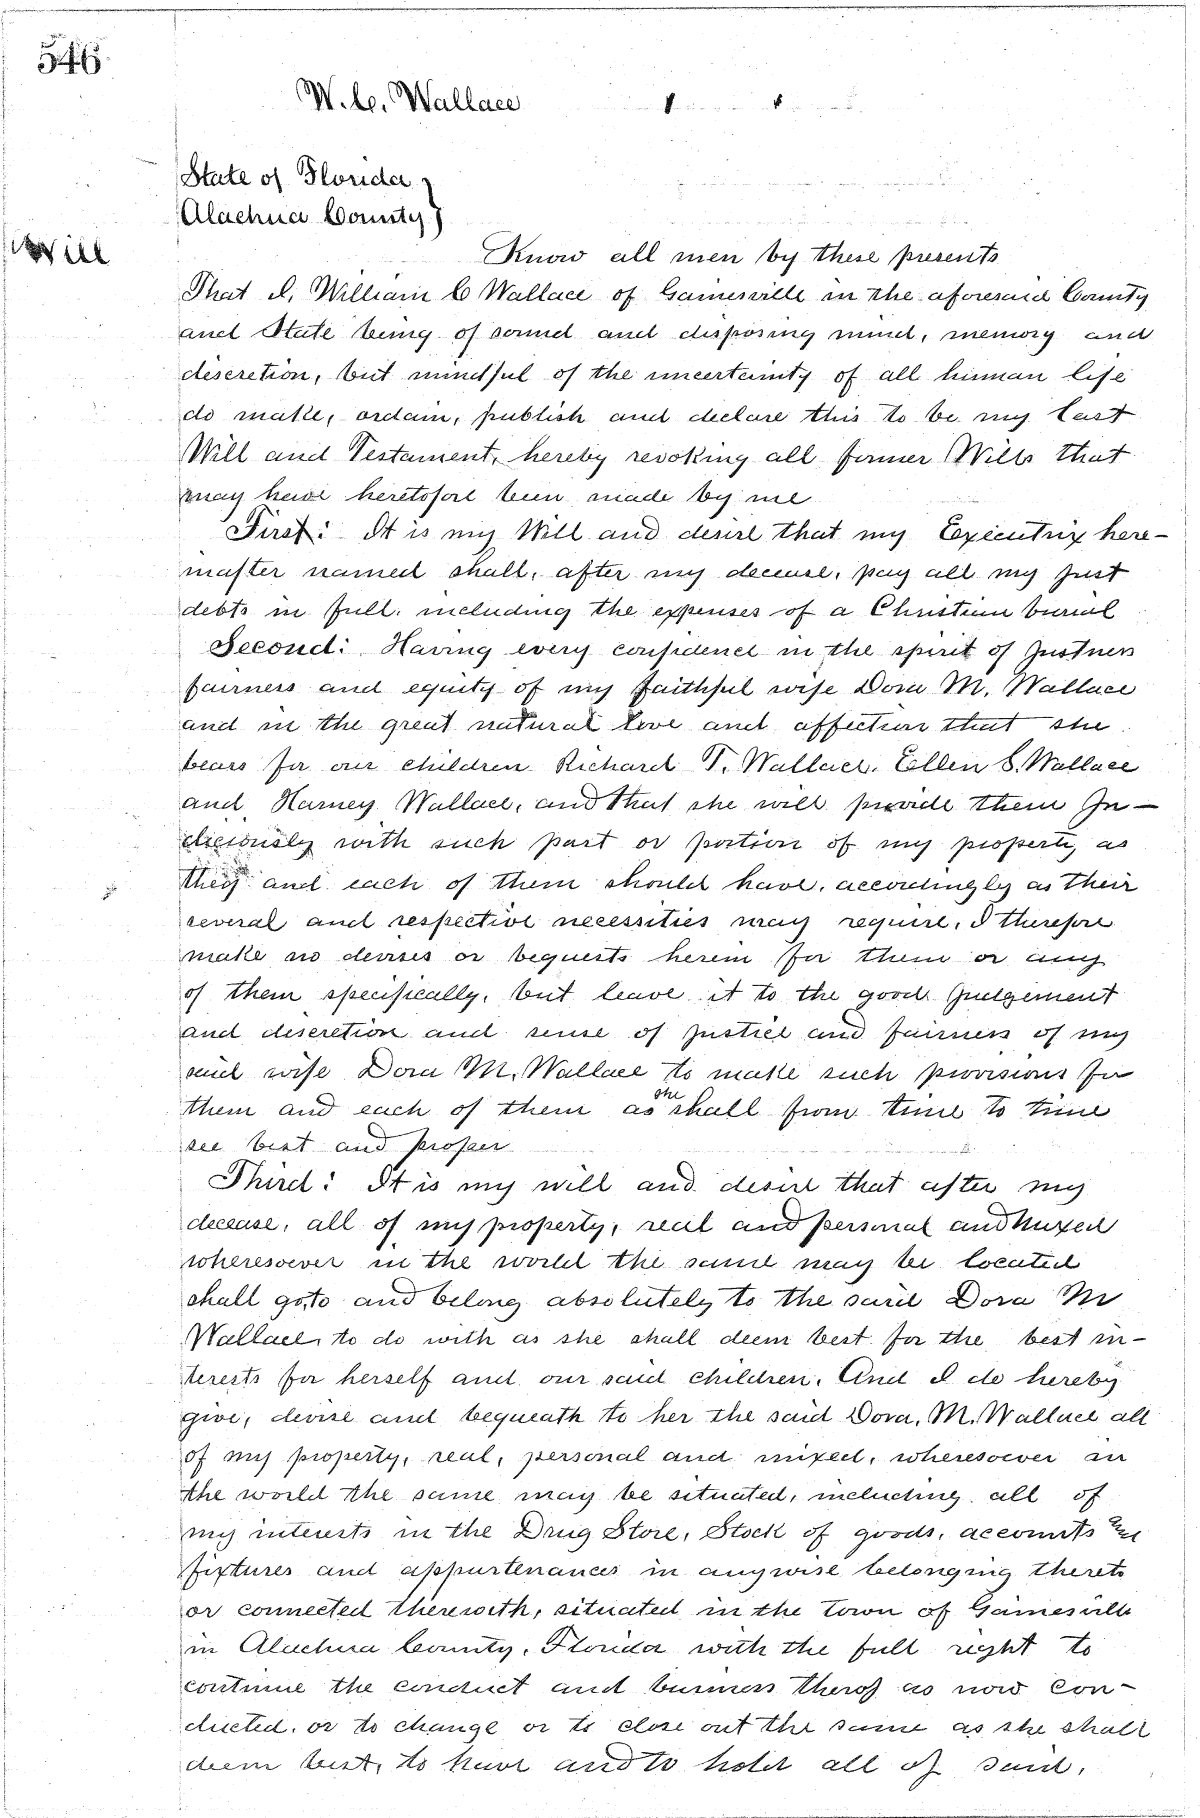 546
W. C. Wallace
State of Florida }
Alachua County }
Will
Know all men by these presents
That I, William C Wallace of Gainesville in the aforesaid County
and State being of sound and disposing mind, memory and
discretion, but mindful of the uncertainty of all human life
do make, ordain, publish and declare this to be my last
Will and Testament, hereby revoking all former Wills that
may have heretofore been made by me
First: It is my Will and desire that my Executrix here-
inafter named shall, after my decease, pay all my just
debts in full, including the expenses of a Christian burial
Second: Having every confidence in the spirit of Justness
fairness and equity of my faithful wife Dora M. Wallace
and in the great natural love and affection that she
bears for our children Richard T. Wallace, Ellen S. Wallace
and Harney Wallace, and that she will provide them Ju-
diciously with such part or portion of my property as
they and each of them should have, accordingly as their
several and respective necessities may require, I therefore
make no devises or bequests herein for them or any
of them specifically, but leave it to the good Judgement
and discretion and sense of Justice and fairness of my
said wife Dora M. Wallace to make such provisions for
them and each of them as she shall from time to time
see best and proper
Third: It is my will and desire that after my
decease, all of my property, real and personal and Mixed
wheresoever in the world the same may be located
shall go to and belong absolutely to the said Dora M
Wallace, to do with as she shall deem best for the best in-
terests for herself and our said children. And I do hereby
give, devise and bequeath to her the said Dora, M. Wallace all
of my property, real, personal and mixed, wheresoever in
the world the same may be situated, including all of
my interests in the Drug Store, Stock of goods, accounts and
fixtures and appurtenances in anywise belonging thereto
or connected therewith, situated in the town of Gainesville
in Alachua County, Florida with the full right to
continue the conduct and business therof as now con-
ducted, or to change or to close out the same as she shall
deem best, to have and to hold all of said,